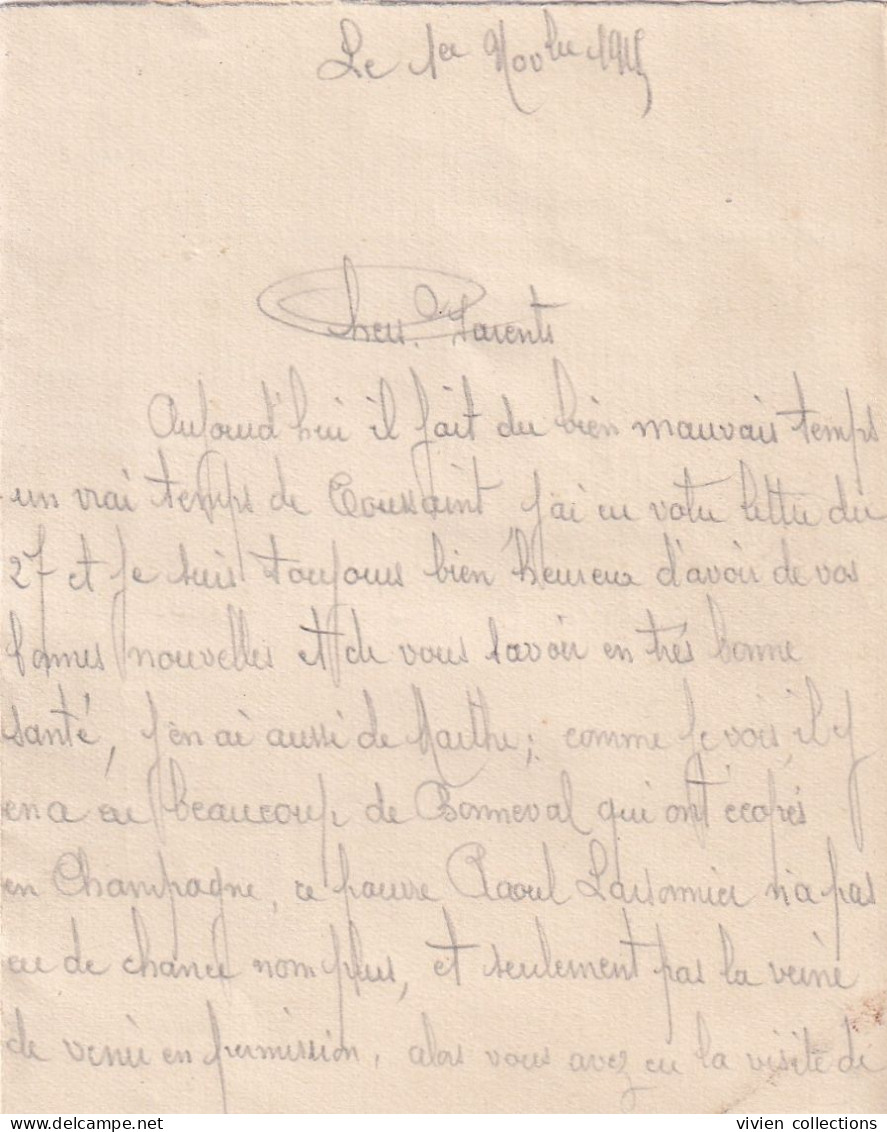 Le 1er Novbre 1915
Chers Parents
Aujourd'hui il fait du bien mauvais temps
un vrai temps de Toussaint, j'ai eu votre lettre du
27 et je suis toujours bien heureux d'avoir de vos
bonnes nouvelles et de vous savoir en très bonne
santé, j'en ai aussi de Marthe; comme je vois, il y
en a eu beaucoup de Bonneval qui ont écopés
en Champagne, ce pauvre Raoul n'a pas
eu de chance nom plus, et seulement pas la veine
de venir en permission, alors vous avez eu la visite de
vivien collections